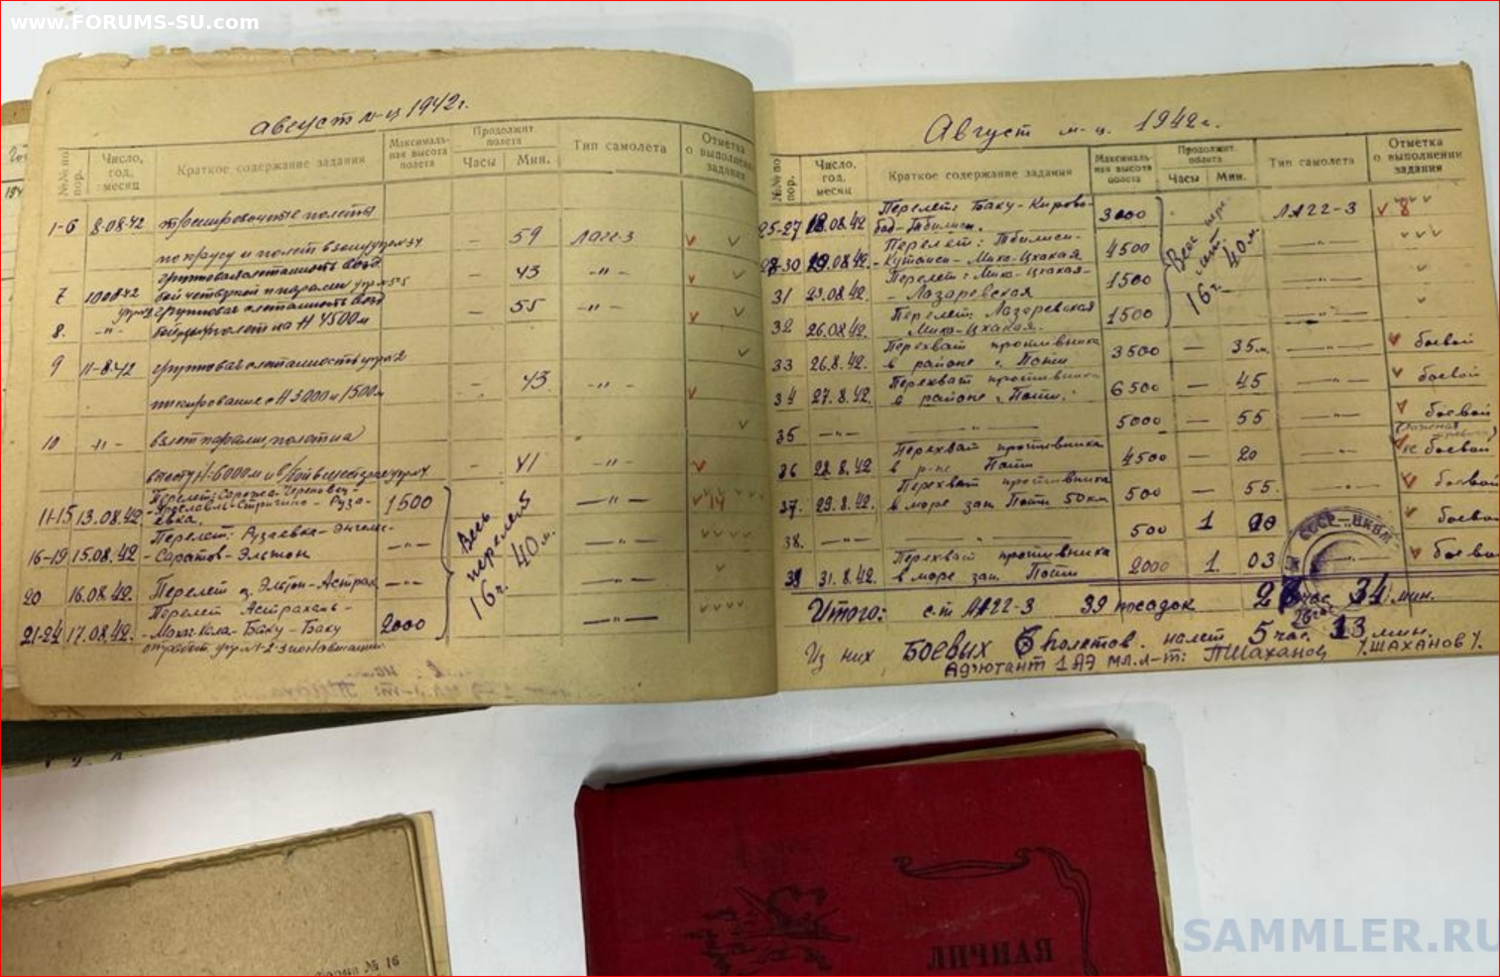 www.FORUMS-SU.com
Август м-ц 1942г.
№№ по пор.
Число, год, месяц
Краткое содержание задания
Максимальная высота полета
Продолжит полета
Часы
Мин.
Тип самолета
Отметка о выполнении задания
1-6 8.08.42 тренировочные полеты
по кругу и полет в зону упр. 34 - 59 Лагг-3
групповая слетанность возд
7 10.08.42 бой четверкой и парами - 43 -"-
групповая слетанность возд
8. -"- полет на Н 4500м - 55 -"-
9 11-8.42 групповая слетанность упр 2
пикирование с Н 3000 и 1500м - 43. -"-
10 -"- взлет парами, полет на
высоту Н-6000м - 41 -"-
Перелет: Череповец-
11-15 13.08.42 -Ярославль-Стригино-Руза- 1500 -"- 14
евка.
Перелет: Рузаевка-Энгельс-
16-19 15.08.42 -Саратов-Эльтон -"- -"-
20 16.08.42. Перелет Эльтон-Астрах -"- -"-
Перелет Астрахань-
21-24 17.08.42. -Махач-Кала-Баку-Баку 2000 -"-
Весь перелет 16ч. 40м.
Август м-ц. 1942г.
№№ по пор.
Число, год, месяц
Краткое содержание задания
Максимальная высота полета
Продолжит полета
Часы
Мин.
Тип самолета
Отметка о выполнении задания
25-27 18.08.42 Перелет: Баку-Кирово- 3000 ЛАГГ-3 8
бад-Тбилиси.
Перелет: Тбилиси-
28-30 19.08.42. -Кутаиси-Миха-Цхакая 4500 -"-
Перелет: Миха-Цхакая-
31 23.08.42. -Лазаревская 1500 -"-
32 26.08.42. Перелет: Лазаревская 1500 -"-
Миха-Цхакая.
Весь перелет 16г. 40м.
Перехват противника
33 26.8.42. в районе г. Поти 3500 — 35м. -"- боевой
Перехват противника
34 27.8.42. в районе г. Поти. 6500 — 45 -"- боевой
35 —"— " 5000 — 55 -"- боевой
Перехват противника
36 28.8.42 в р-не Поти 4500 — 20 -"- боевой
Перехват противника
37. 29.8.42. в море зап. Поти 50км 500 — 55. -"- боевой
38. —"— " 500 1 00 боевой
Перехват противника
39 31.8.42. в море зап. Поти 2000 1. 03 -"- боевой
СССР НКВМФ
Итого: с-т ЛАГГ-3 39 посадок час 34 мин.
26час
Из них Боевых 6 полетов. налет 5 час. 13 мин.
Адъютант 1 АЭ мл.л-т: ПШаханов /ШАХАНОВ/.
SAMMLER.RU
ЛИЧНАЯ